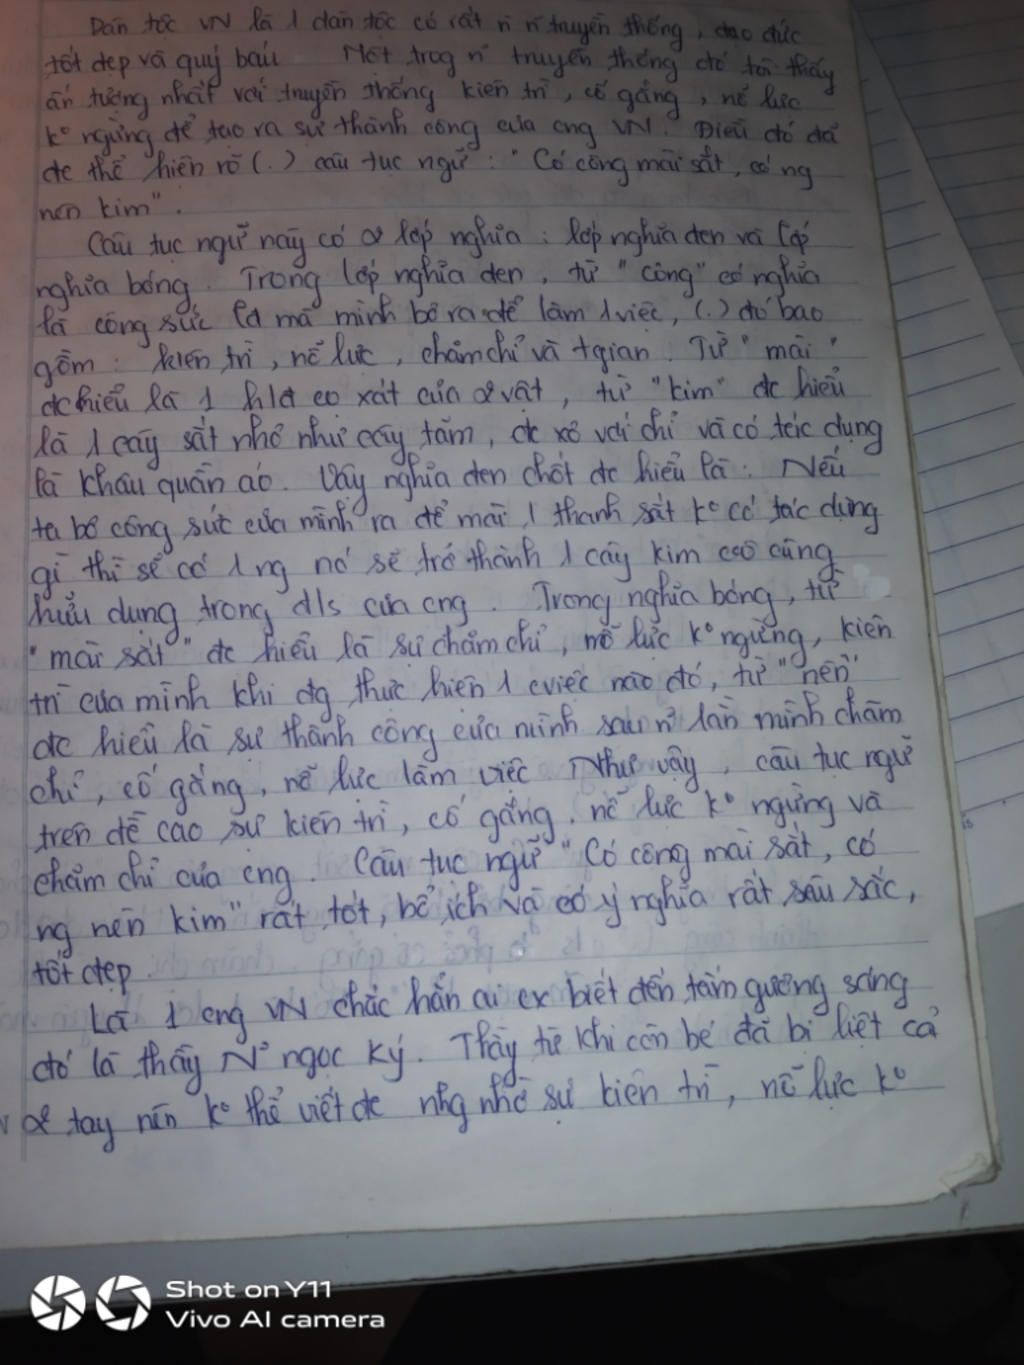 Dân tộc VN là 1 dân tộc có rất n' n' truyền thống, đạo đức
tốt đẹp và quý báu Một trog n' truyền thống đó tôi thấy
ấn tượng nhất với truyền thống kiên trì, cố gắng, nỗ lực
ko ngừng để tạo ra sự thành công của cng VN. Điều đó đã
đc thể hiện rõ (.) câu tục ngữ: "Có công mài sắt, có ng
nên kim".
Câu tục ngữ này có 2 lớp nghĩa: lớp nghĩa đen và lớp
nghĩa bóng. Trong lớp nghĩa đen, từ "công" có nghĩa
là công sức mà mình bỏ ra để làm 1 việc, (.) đó bao
gồm: kiên trì, nỗ lực, chăm chỉ và tgian. Từ "mài"
đc hiểu là 1 hđ cọ xát của 2 vật, từ "kim" đc hiểu
là 1 cây sắt nhỏ như cây tăm, đc xỏ với chỉ và có tác dụng
là khâu quần áo. Vậy nghĩa đen chốt đc hiểu là: Nếu
ta bỏ công sức của mình ra để mài 1 thanh sắt ko có tác dụng
gì thì sẽ có 1 ng nó sẽ trở thành 1 cây kim vô cùng
hữu dụng trong đ/s của cng. Trong nghĩa bóng, từ
"mài sắt" đc hiểu là sự chăm chỉ, nỗ lực ko ngừng, kiên
trì của mình khi đg thực hiện 1 cviệc nào đó, từ "nên"
đc hiểu là sự thành công của mình sau n' lần mình chăm
chỉ, cố gắng, nỗ lực làm việc Như vậy, câu tục ngữ
trên đề cao sự kiên trì, cố gắng, nỗ lực ko ngừng và
chăm chỉ của cng. Câu tục ngữ "Có công mài sắt, có
ng nên kim" rất tốt, bổ ích và có ý nghĩa rất sâu sắc,
tốt đẹp.
Là 1 cng VN chắc hẳn ai cx biết đến tấm gương sáng
đó là thầy N~ ngọc Ký. Thầy từ khi còn bé đã bị liệt cả
2 tay nên ko thể viết đc nhg nhờ sự kiên trì, nỗ lực ko
Shot on Y11
Vivo AI camera